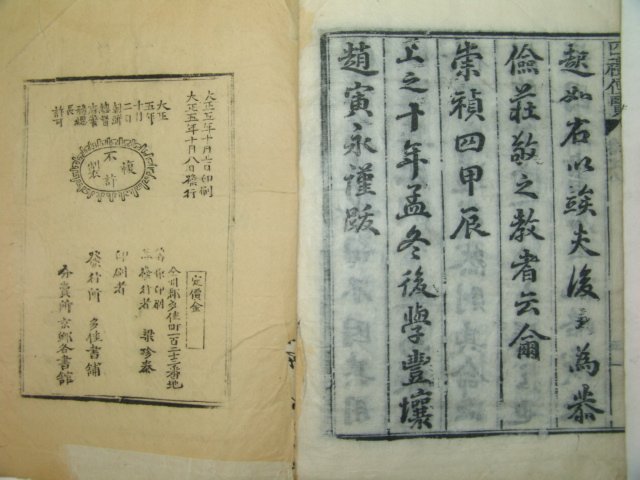 四禮便覽
起如右以竢夫後之為恭
儉莊敬之教者云爾
崇禎四甲辰
上之十年孟冬後學豐壤
趙寅永謹跋
大正五年十月七日印刷
大正五年十月八日發行
大正
五年
十月
二日
朝鮮
總督
府警
務總
長
許可
不許複製
定價金
全州郡多佳町一百二十三番地
著作印刷
兼發行者 梁珍泰
印刷者
發行所 多佳書鋪
分賣所 京鄉各書館